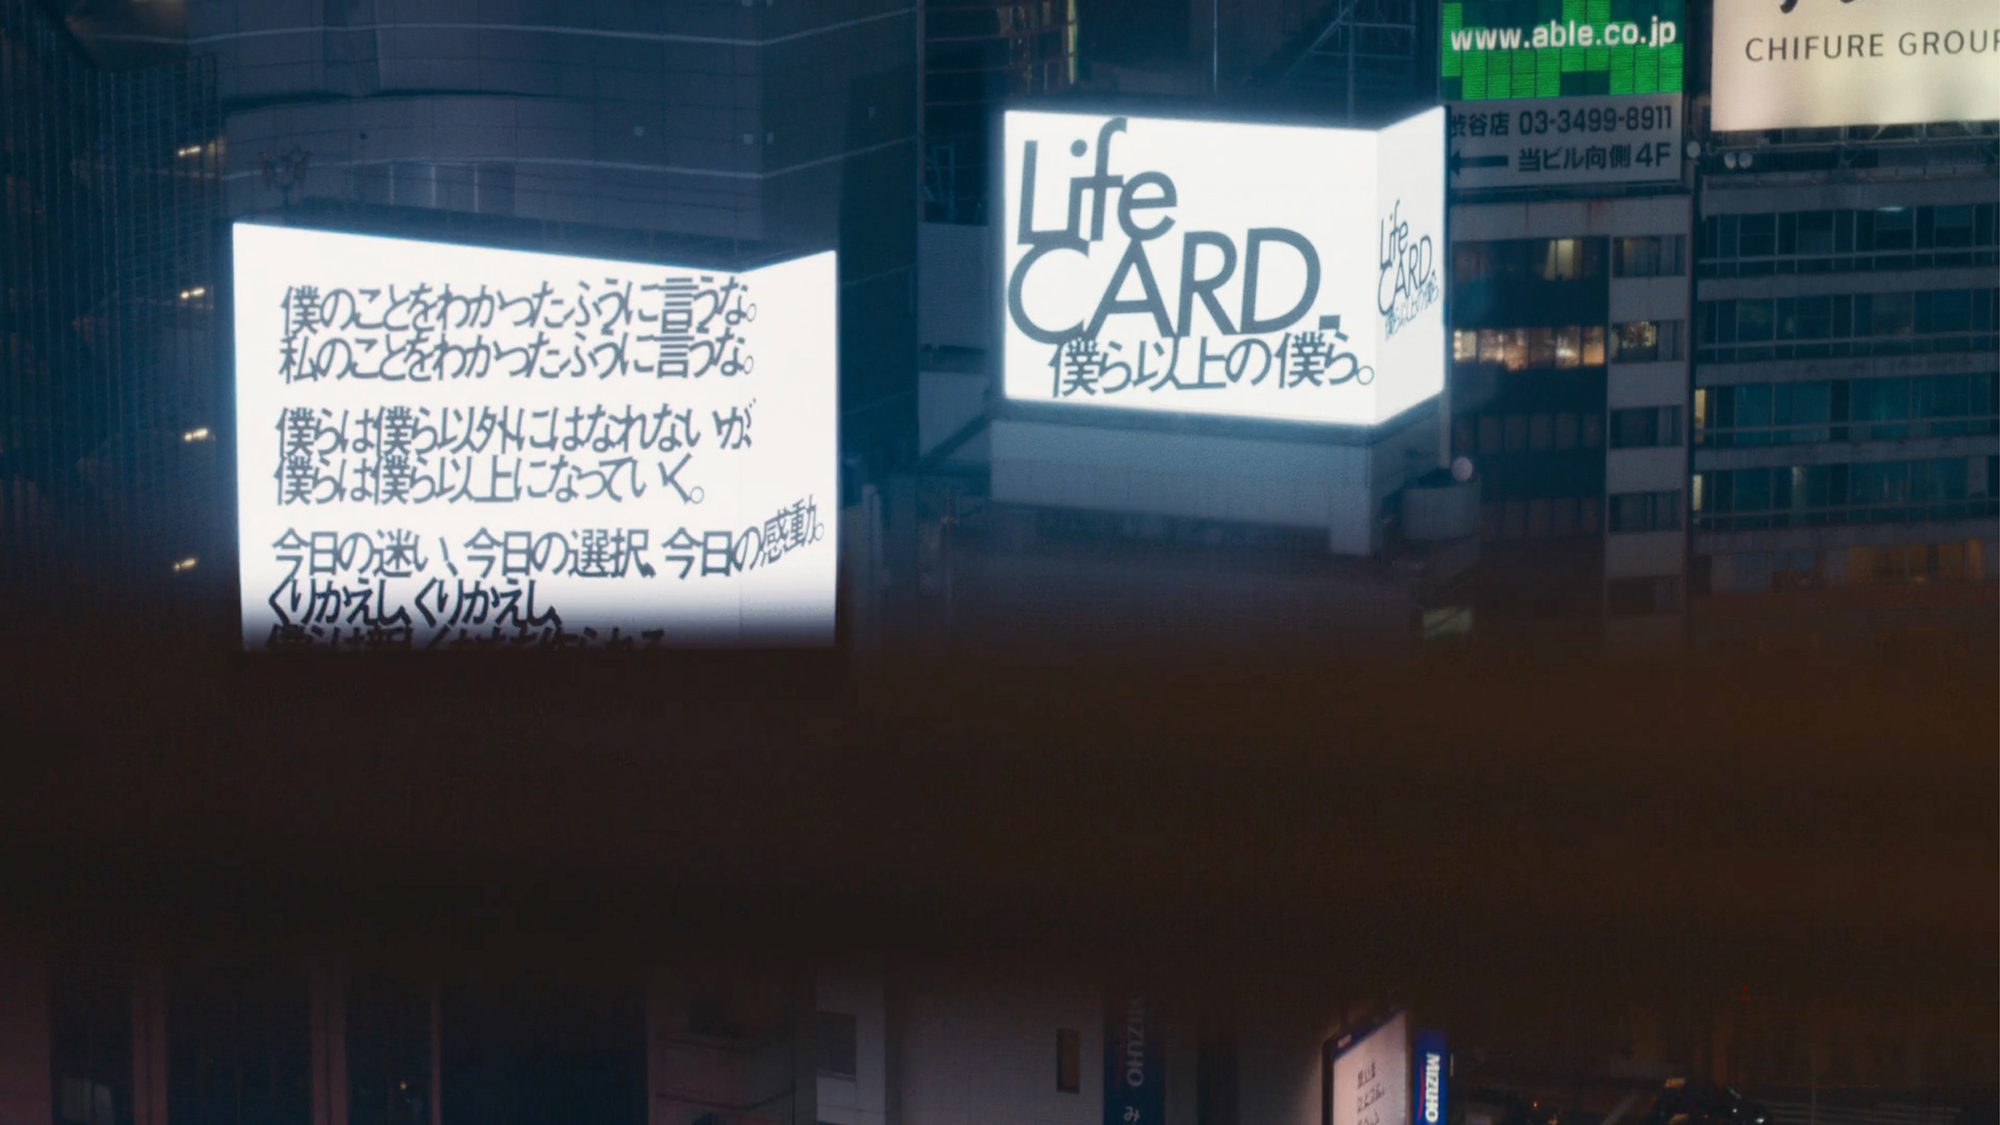 僕のことをわかったふうに言うな。
私のことをわかったふうに言うな。
僕らは僕ら以外にはなれないが、
僕らは僕ら以上になっていく。
今日の迷い、今日の選択、今日の感動。
くりかえし、くりかえし、
Life
CARD.
僕ら以上の僕ら。
Life
CARD.
僕ら以上の僕ら。
www.able.co.jp
渋谷店 03-3499-8911
← 当ビル向側4F
CHIFURE GROUP
MIZUHO み
MIZUHO